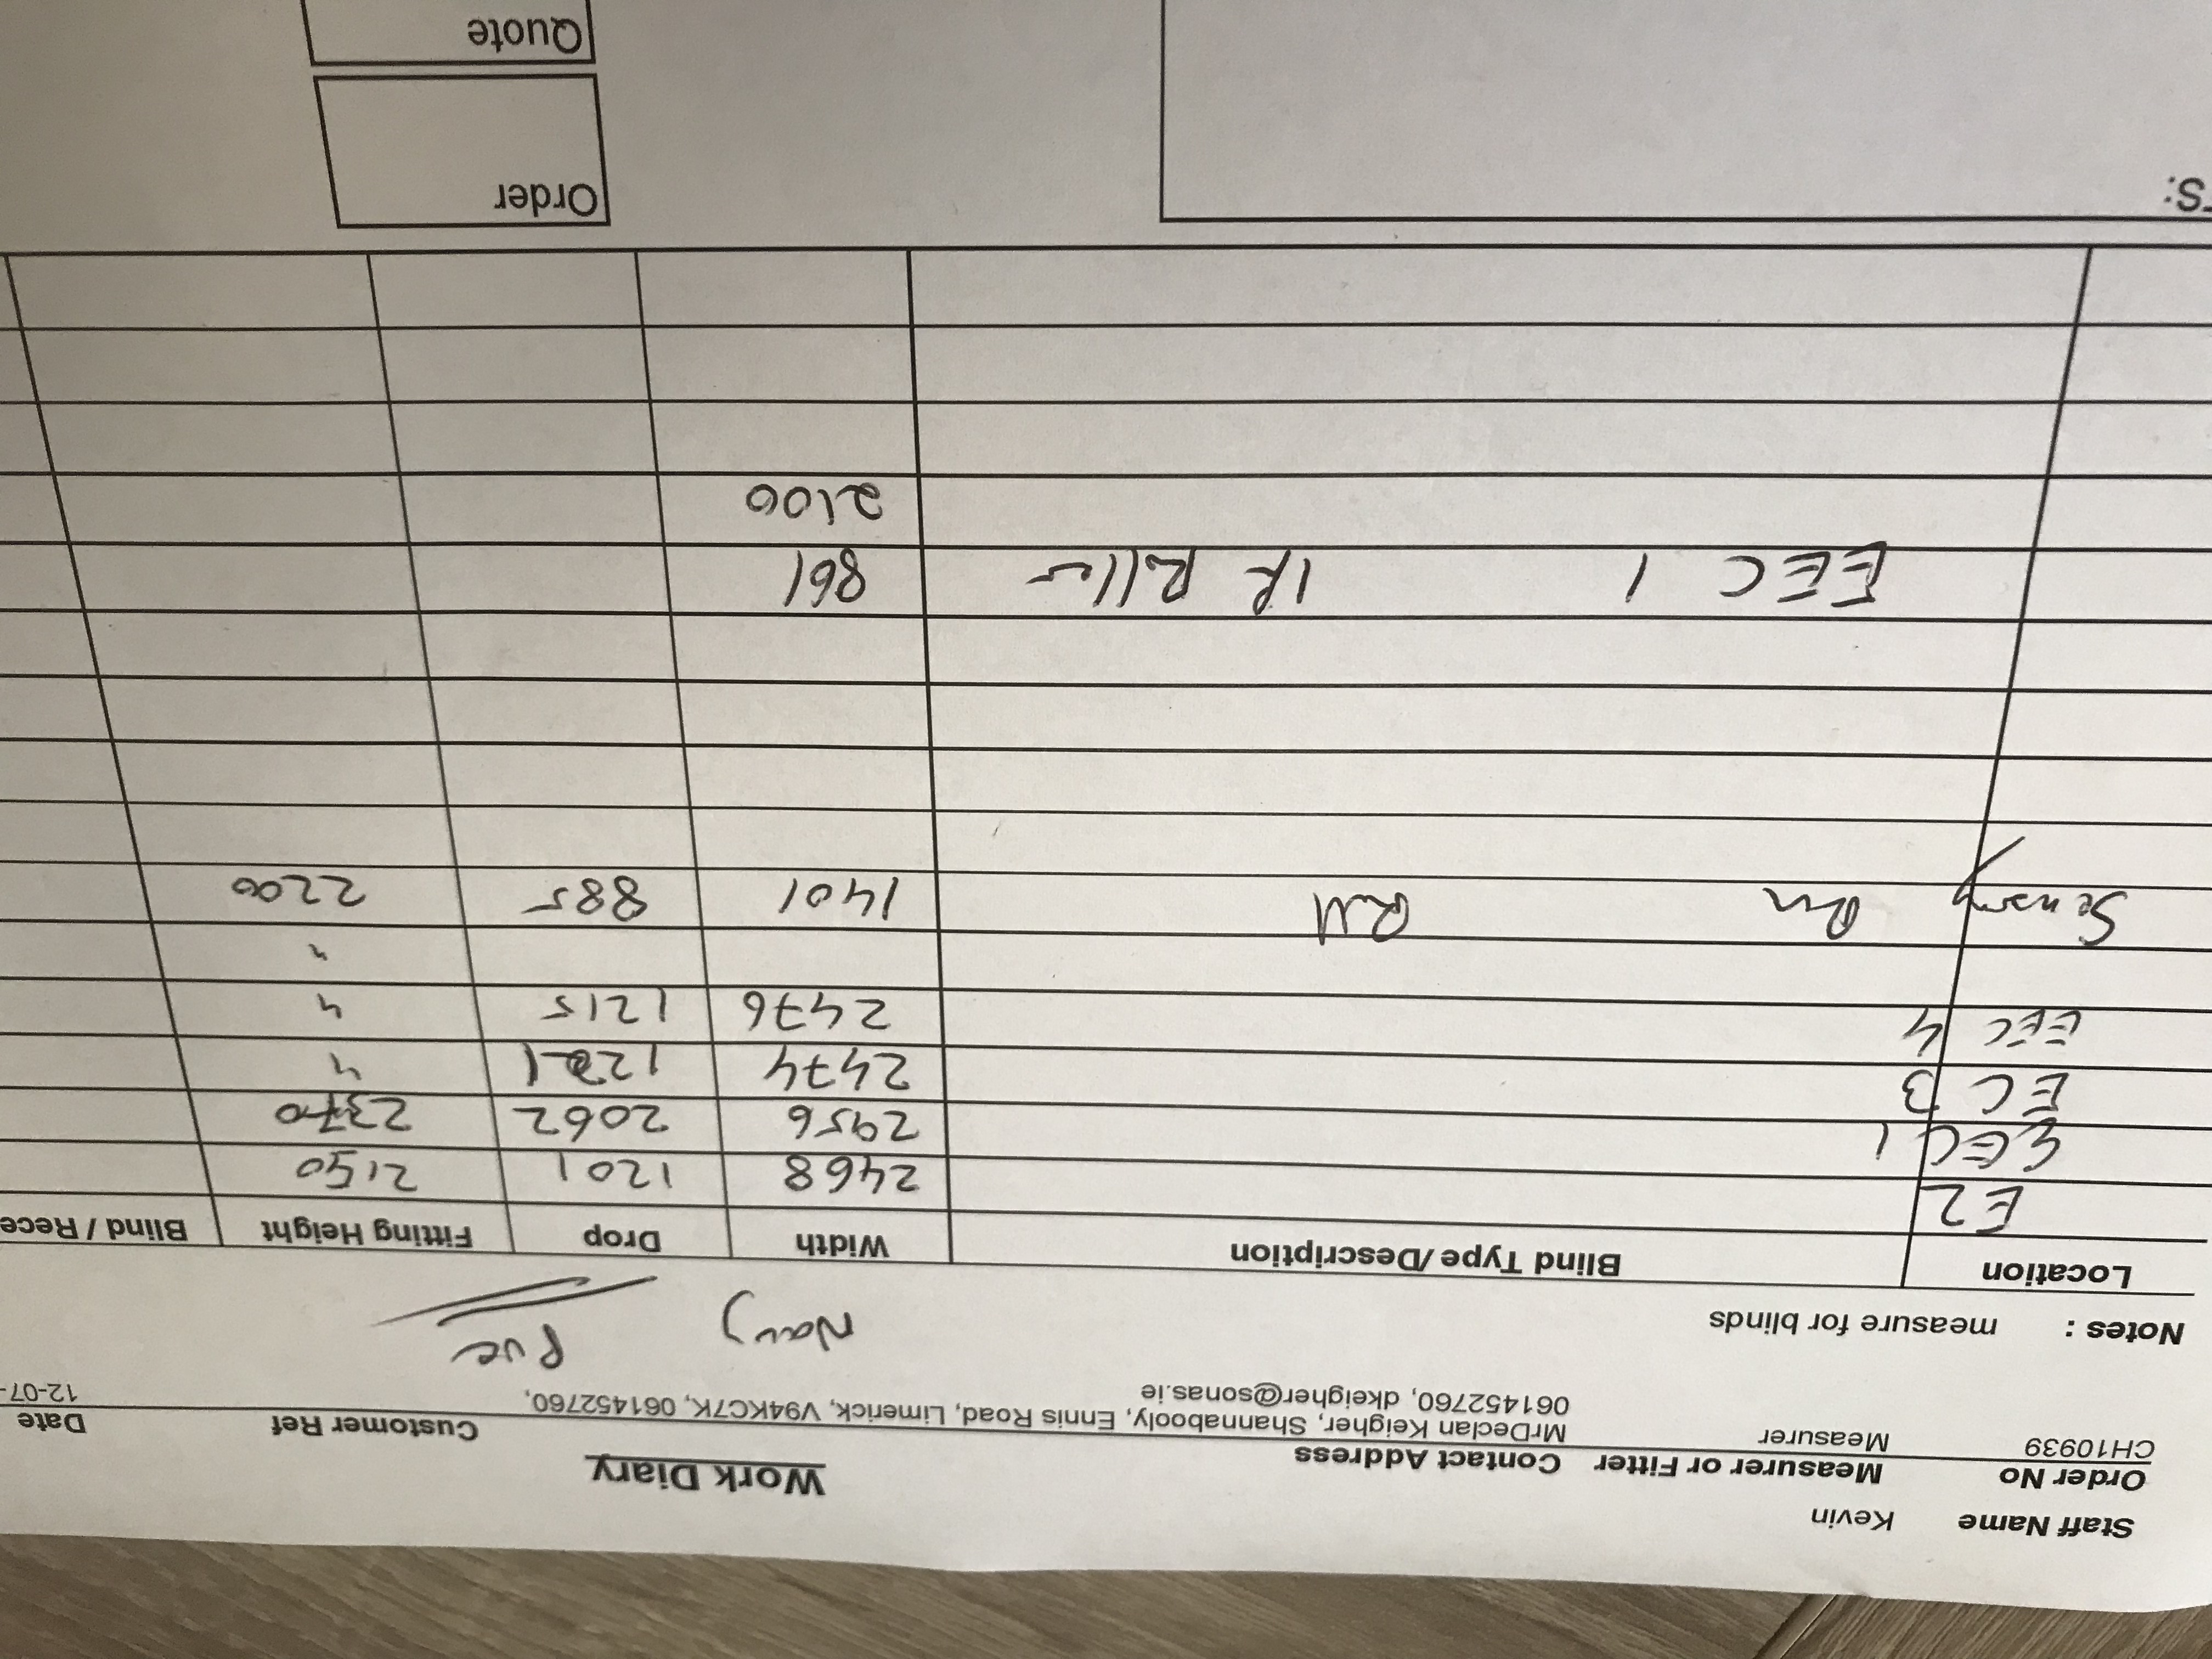 Staff Name Kevin
Work Diary
Order No Measurer or Fitter Contact Address Customer Ref Date
CH10939 Measurer MrDeclan Keigher, Shannabooly, Ennis Road, Limerick, V94KC7K, 061452760, 12-07-
061452760, dkeigher@sonas.ie
Notes : measure for blinds Navy PVC
Location Blind Type /Description Width Drop Fitting Height Blind / Rece
E2 2468 1201 2150
EEC 1 2956 2062 2370
EC 3 2474 1221 "
EEC 4 2476 1215 "
"
Sensory Rm RM 1401 885 2200
EEC 1 1R Roller 861
2100
rs:
Order
Quote